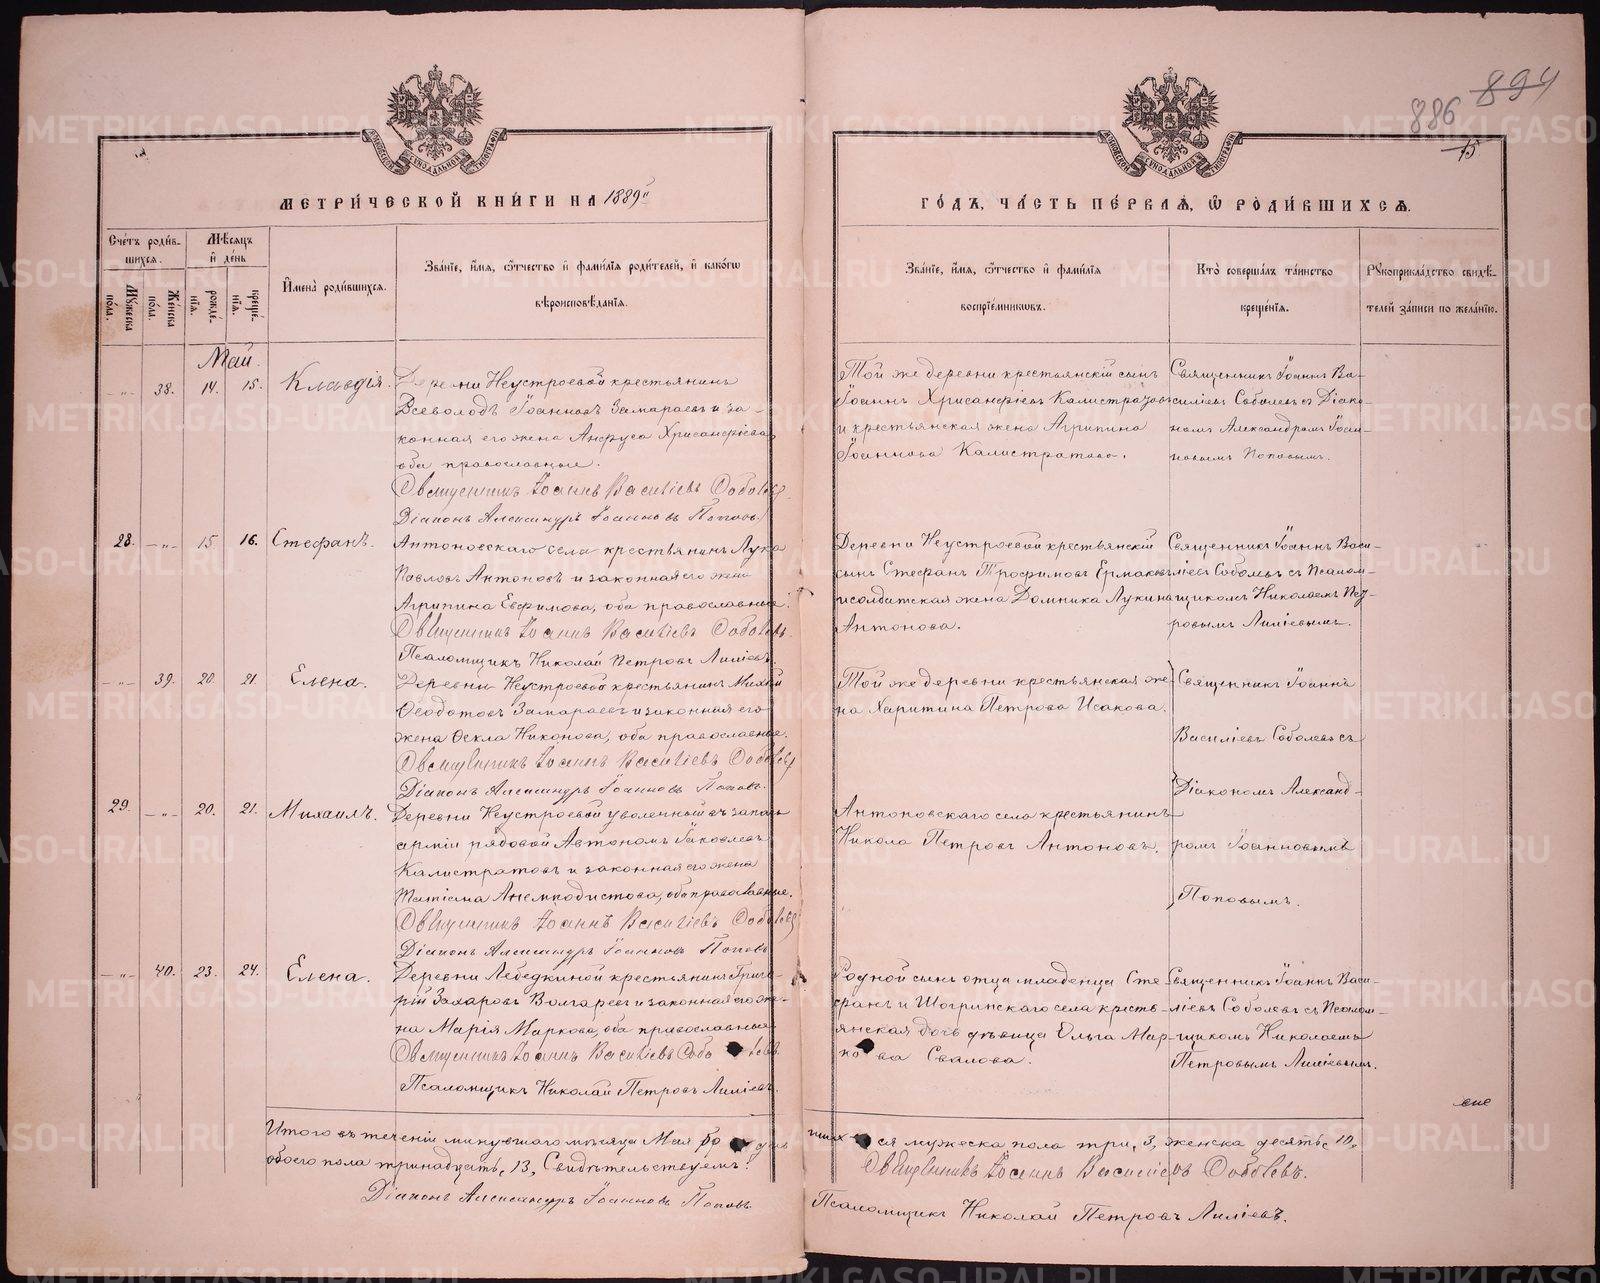 894
886
15
МЕТРИ́ЧЕСКОЙ КНИ́ГИ НА 1889й
ГО́ДЪ, ЧА́СТЬ ПЕ́РВАѦ, Ѡ РОДИ́ВШИХСѦ.
Сче́тъ роди́вшихсѧ.
Мꙋ́жеска по́ла.
Же́нска по́ла.
Мѣ́сѧцъ и́ де́нь
рожде́нїѧ.
креще́нїѧ.
И҆мена̀ роди́вшихсѧ.
Зва́нїе, и́мѧ, ѻ҆́тчество и҆ фами́лїѧ роди́телей, и҆ како́гѡ
вѣроисповѣ́данїѧ.
Зва́нїе, и́мѧ, ѻ҆́тчество и҆ фами́лїѧ
воспрїе́мникѡвъ.
Кто̀ соверша́лъ та́инство
креще́нїѧ.
Рꙋкоприкла́дство свидѣ́-
телей за́писи по жела́нїю.
Май.
-„- 38. 14. 15. Клавдія.
Деревни Неустроевой крестьянинъ
Всеволодъ Іоанновъ Замараевъ и за-
конная его жена Анфуса Хрисанфіева
оба православные.
Священникъ Іоаннъ Василіевъ Соболевъ
Діаконъ Александръ Іоанновъ Поповъ.
Той же деревни крестьянскій сынъ
Іоаннъ Хрисанфіевъ Калистратовъ
и крестьянская жена Агрипина
Іоаннова Калистратова.
Священникъ Іоаннъ Ва-
силіевъ Соболевъ съ Діако-
номъ Александромъ Іоан-
новымъ Поповымъ.
28. -„- 15 16. Стефанъ.
Антоновскаго села крестьянинъ Лука
Павловъ Антоновъ и законная его жена
Агрипина Евфимова, оба православные.
Священникъ Іоаннъ Василіевъ Соболевъ.
Псаломщикъ Николай Петровъ Лиліевъ.
Деревни Неустроевой крестьянскій
сынъ Стефанъ Трофимовъ Ермаковъ
и солдатская жена Домника Лукина
Антонова.
Священникъ Іоаннъ Васи-
ліевъ Соболевъ съ Псалом-
щикомъ Николаемъ Пет-
ровымъ Лиліевымъ.
-„- 39. 20. 21. Елена.
Деревни Неустроевой крестьянинъ Михаилъ
Ѳеодотовъ Замараевъ и законная его
жена Ѳекла Никонова, оба православные.
Священникъ Іоаннъ Василіевъ Соболевъ
Діаконъ Александръ Іоанновъ Поповъ.
Той же деревни крестьянская же-
на Харитина Петрова Исакова.
Священникъ Іоаннъ
Василіевъ Соболевъ съ
Діакономъ Александ-
ромъ Іоанновымъ
Поповымъ.
29. -„- 20. 21. Михаилъ.
Деревни Неустроевой уволенный въ запасъ
арміи рядовой Автономъ Іаковлевъ
Калистратовъ и законная его жена
Татіана Анемподистова, оба православные.
Священникъ Іоаннъ Василіевъ Соболевъ
Діаконъ Александръ Іоанновъ Поповъ
Антоновскаго села крестьянинъ
Никола Петровъ Антоновъ.
-„- 40. 23. 24. Елена.
Деревни Лебедкиной крестьянинъ Григо-
рій Захаровъ Волгаревъ и законная его же-
на Марія Маркова, оба православные
Священникъ Іоаннъ Василіевъ Соболевъ
Псаломщикъ Николай Петровъ Лиліевъ
Родной сынъ отца младенца Сте-
фанъ и Шогринскаго села кресть-
янская дочь дѣвица Ольга Мар-
кова Свалова.
Священникъ Іоаннъ Васи-
ліевъ Соболевъ съ Псалом-
щикомъ Николаемъ
Петровымъ Лиліевымъ.
Итого въ теченіи минувшаго мѣсяца Мая
шихся мужеска пола три, 3, женска десять, 10,
обоего пола тринадцать, 13, Свидѣтельствуемъ:
Священникъ Іоаннъ Василіевъ Соболевъ.
Діаконъ Александръ Іоанновъ Поповъ
Псаломщикъ Николай Петровъ Лиліевъ.
METRIKI.GASO-URAL.RU